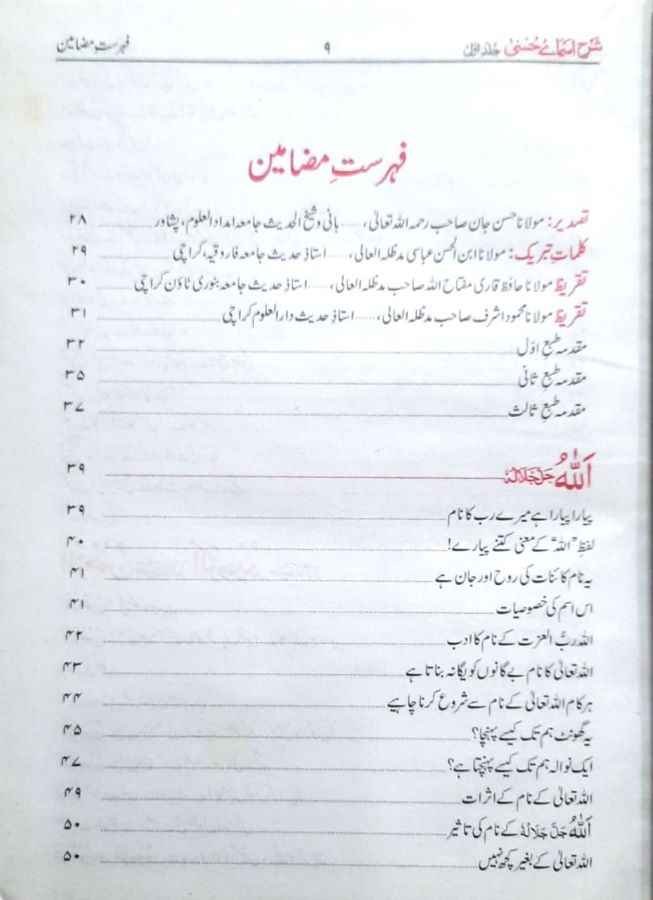 شرح اسمائے حسنیٰ جلد اوّل ۹ فہرستِ مضامین
فہرستِ مضامین
تصدیر: مولانا حسن جان صاحب رحمہ اللہ تعالیٰ، ..... بانی و شیخ الحدیث جامعہ امداد العلوم، پشاور ۲۸
کلماتِ تبریک: مولانا ابن الحسن عباسی مدظلہ العالی، ..... استاذِ حدیث جامعہ فاروقیہ، کراچی ۲۹
تقریظ مولانا حافظ قاری مفتاح اللہ صاحب مدظلہ العالی، ..... استاذِ حدیث جامعہ بنوری ٹاؤن کراچی ۳۰
تقریظ مولانا محمود اشرف صاحب مدظلہ العالی، ..... استاذِ حدیث دارالعلوم کراچی ۳۱
مقدمہ طبع اوّل ۳۲
مقدمہ طبع ثانی ۳۵
مقدمہ طبع ثالث ۳۷
اَللّٰهُ جَلَّ جَلَالُهٗ ۳۹
پیارا پیارا ہے میرے رب کا نام ۳۹
لفظِ ”اللہ“ کے معنی کتنے پیارے! ۴۰
یہ نام کائنات کی روح اور جان ہے ۴۱
اس اسم کی خصوصیات ۴۱
اللہ ربُّ العزت کے نام کا ادب ۴۲
اللہ تعالیٰ کا نام بے گانوں کو یگانہ بناتا ہے ۴۳
ہر کام اللہ تعالیٰ کے نام سے شروع کرنا چاہیے ۴۴
یہ گھونٹ ہم تک کیسے پہنچا؟ ۴۵
ایک نوالہ ہم تک کیسے پہنچتا ہے؟ ۴۷
اللہ تعالیٰ کے نام کے اثرات ۴۹
اَللّٰهُ جَلَّ جَلَالُهٗ کے نام کی تاثیر ۵۰
اللہ تعالیٰ کے بغیر کچھ نہیں ۵۰